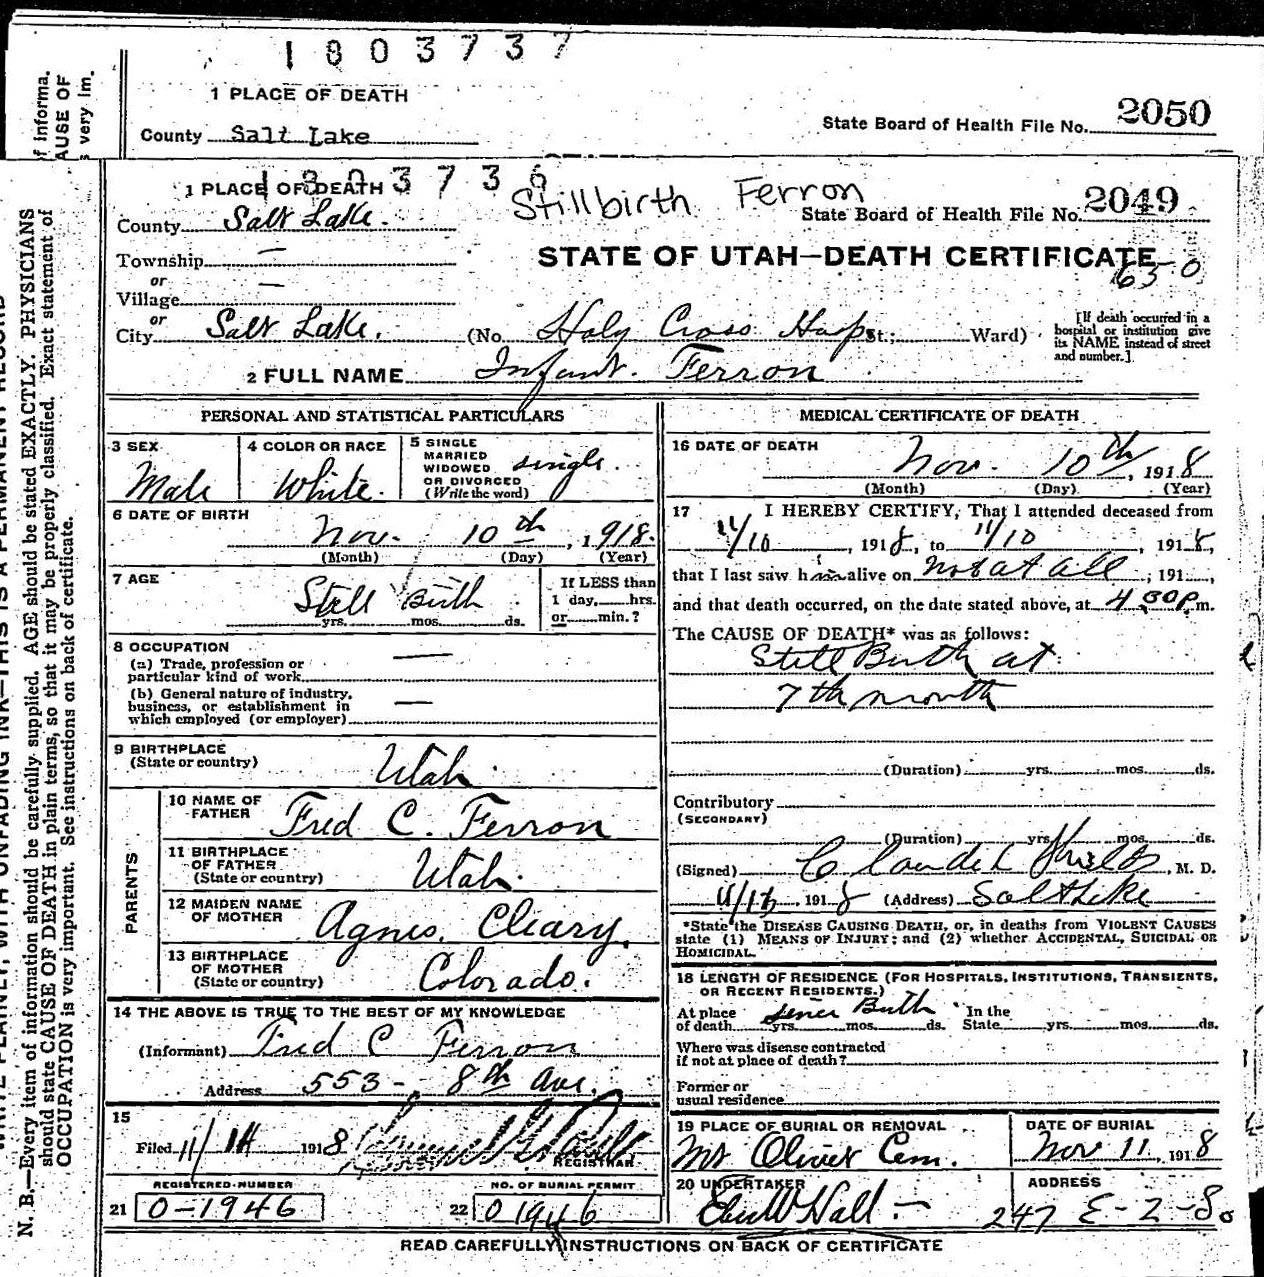 1803737
1 PLACE OF DEATH
County Salt Lake
State Board of Health File No. 2050
of informa.
AUSE OF
s very im.
1 PLACE OF DEATH 3736
Stillbirth Ferron
State Board of Health File No. 2049
County Salt Lake.
Township —
STATE OF UTAH—DEATH CERTIFICATE
65-0
or
Village —
or
City Salt Lake. (No. Holy Cross Hosp St.; Ward)
[If death occurred in a
hospital or institution give
its NAME instead of street
and number.]
2 FULL NAME Infant. Ferron
PERSONAL AND STATISTICAL PARTICULARS
3 SEX
Male
4 COLOR OR RACE
White.
5 SINGLE
MARRIED
WIDOWED
OR DIVORCED
(Write the word)
single.
6 DATE OF BIRTH
Nov. 10th, 1918.
(Month) (Day) (Year)
7 AGE
Still Birth
yrs. mos. ds.
If LESS than
1 day, hrs.
or min.?
8 OCCUPATION
(a) Trade, profession or
particular kind of work —
(b) General nature of industry,
business, or establishment in
which employed (or employer) —
9 BIRTHPLACE
(State or country)
Utah.
PARENTS
10 NAME OF
FATHER
Fred C. Ferron
11 BIRTHPLACE
OF FATHER
(State or country)
Utah.
12 MAIDEN NAME
OF MOTHER
Agnes. Cleary.
13 BIRTHPLACE
OF MOTHER
(State or country)
Colorado.
14 THE ABOVE IS TRUE TO THE BEST OF MY KNOWLEDGE
(Informant) Fred C Ferron
Address 553 - 8th Ave.
15
Filed 11/14 1918
REGISTRAR
REGISTERED NUMBER
21 0-1946
NO. OF BURIAL PERMIT
22 01946
MEDICAL CERTIFICATE OF DEATH
16 DATE OF DEATH
Nov. 10th, 1918
(Month) (Day) (Year)
17 I HEREBY CERTIFY, That I attended deceased from
11/10, 1918, to 11/10, 1918,
that I last saw him alive on not at all, 191 ,
and that death occurred, on the date stated above, at 4.30 P.m.
The CAUSE OF DEATH* was as follows:
Still Birth at
7th month
(Duration) yrs. mos. ds.
Contributory
(SECONDARY)
(Duration) yrs. mos. ds.
(Signed) Claude L Shields, M. D.
11/13, 1918 (Address) Salt Lake
*State the DISEASE CAUSING DEATH, or, in deaths from VIOLENT CAUSES
state (1) MEANS OF INJURY; and (2) whether ACCIDENTAL, SUICIDAL OR
HOMICIDAL.
18 LENGTH OF RESIDENCE (FOR HOSPITALS, INSTITUTIONS, TRANSIENTS,
OR RECENT RESIDENTS.)
At place
of death since Birth yrs. mos. ds.
In the
State yrs. mos. ds.
Where was disease contracted
if not at place of death?
Former or
usual residence
19 PLACE OF BURIAL OR REMOVAL
Mt Olivet Cem.
DATE OF BURIAL
Nov 11, 1918
20 UNDERTAKER
Eber W Hall. -
ADDRESS
247 E-2-So
READ CAREFULLY INSTRUCTIONS ON BACK OF CERTIFICATE
WRITE PLAINLY, WITH UNFADING INK—THIS IS A PERMANENT RECORD
N. B.—Every item of information should be carefully supplied. AGE should be stated EXACTLY. PHYSICIANS
should state CAUSE OF DEATH in plain terms, so that it may be properly classified. Exact statement of
OCCUPATION is very important. See instructions on back of certificate.